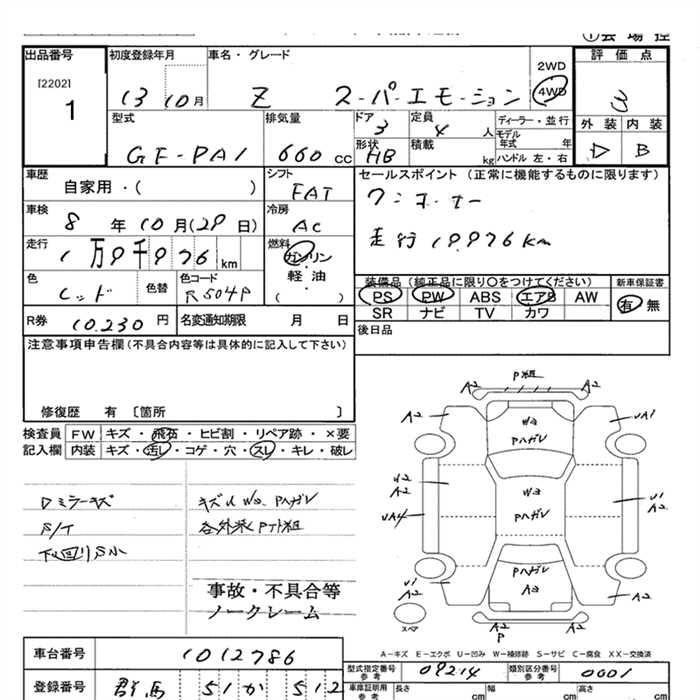 ①会 場 控
出品番号 初度登録年月 車名・グレード 評 価 点
[2202]
1
13 10月
Z スーパーエモーション
2WD
4WD
3
型式 排気量 ドア 定員 ディーラー・並行 外装 内装
3 4 人 モデル年式 年
GF-PA1 660 CC
形状 HB 積載 kg ハンドル 左・右
D B
車歴 シフト セールスポイント (正常に機能するものに限ります)
自家用・( ) FAT
ワンオーナー
車検 冷房
8 年 10 月(29 日) AC
走行 19,976km
走行 燃料
1万9千976 km ガソリン
軽油
( ・ )
色 色替 色コード
レッド R504P
装備品 (純正品に限り○をつけてください) 新車保証書
PS PW ABS エアB AW 有・無
SR ナビ TV カワ
R券 10.230 円 名変通知期限 月 日
後日品
注意事項申告欄(不具合内容等は具体的に記入して下さい)
修復歴 有 〔箇所 〕
検査員 FW キズ・飛石・ヒビ割・リペア跡・×要
記入欄 内装 キズ・汚レ・コゲ・穴・スレ・キレ・破レ
Dミラーキズ
キズU W2 Pハガレ
下回りS小
事故・不具合等
ノークレーム
P組
A2 A2
A2 UA1
W2
Pハガレ
A2 U1
A2
W2
Pハガレ
UA4
Pハガレ
A2
U1
A2 A2
スペア
A2 P A2
A-キズ E-エクボ U-凹み W-補修跡 S-サビ C-腐食 XX-交換済
車台番号 1012786
型式指定番号 参考 09214 類別区分番号 参考 0001
登録番号 群馬 51 か 512
車庫証明用 参考 長さ cm 幅 cm 高さ cm